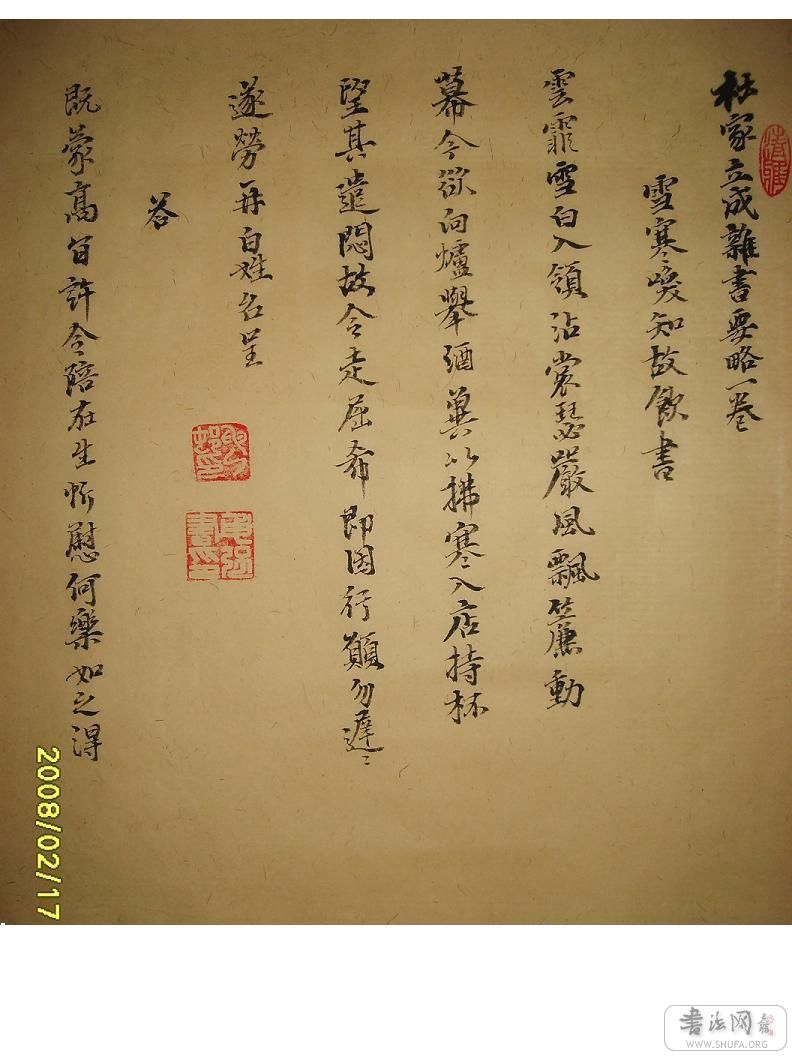 杜家立成雜書要略一卷
雪寒喚知故飲書
雲霏雪白入領沾裳瑟嚴風飄簾動
幕今欲向爐舉酒冀以拂寒入店持杯
望其遣悶故令走屈希即因行願勿遲〻
遂勞再白姓名呈
荅
既蒙高旨許令陪在生忻慰何樂如之得
2008/02/17
書法网
WWW.SHUFA.ORG